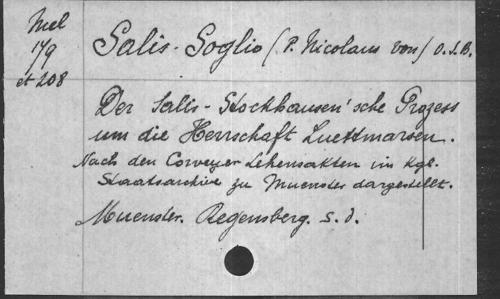 Mel
179
et 208
Salis-Soglio (P. Nicolaus von) O.S.B.
Der Salis-Stockhausen'sche Prozess
um die Herrschaft Luettmarsen.
Nach den Corveyer Lehensakten im Kgl.
Staatsarchive zu Muenster dargestellt.
Muenster. Regensberg. s. d.